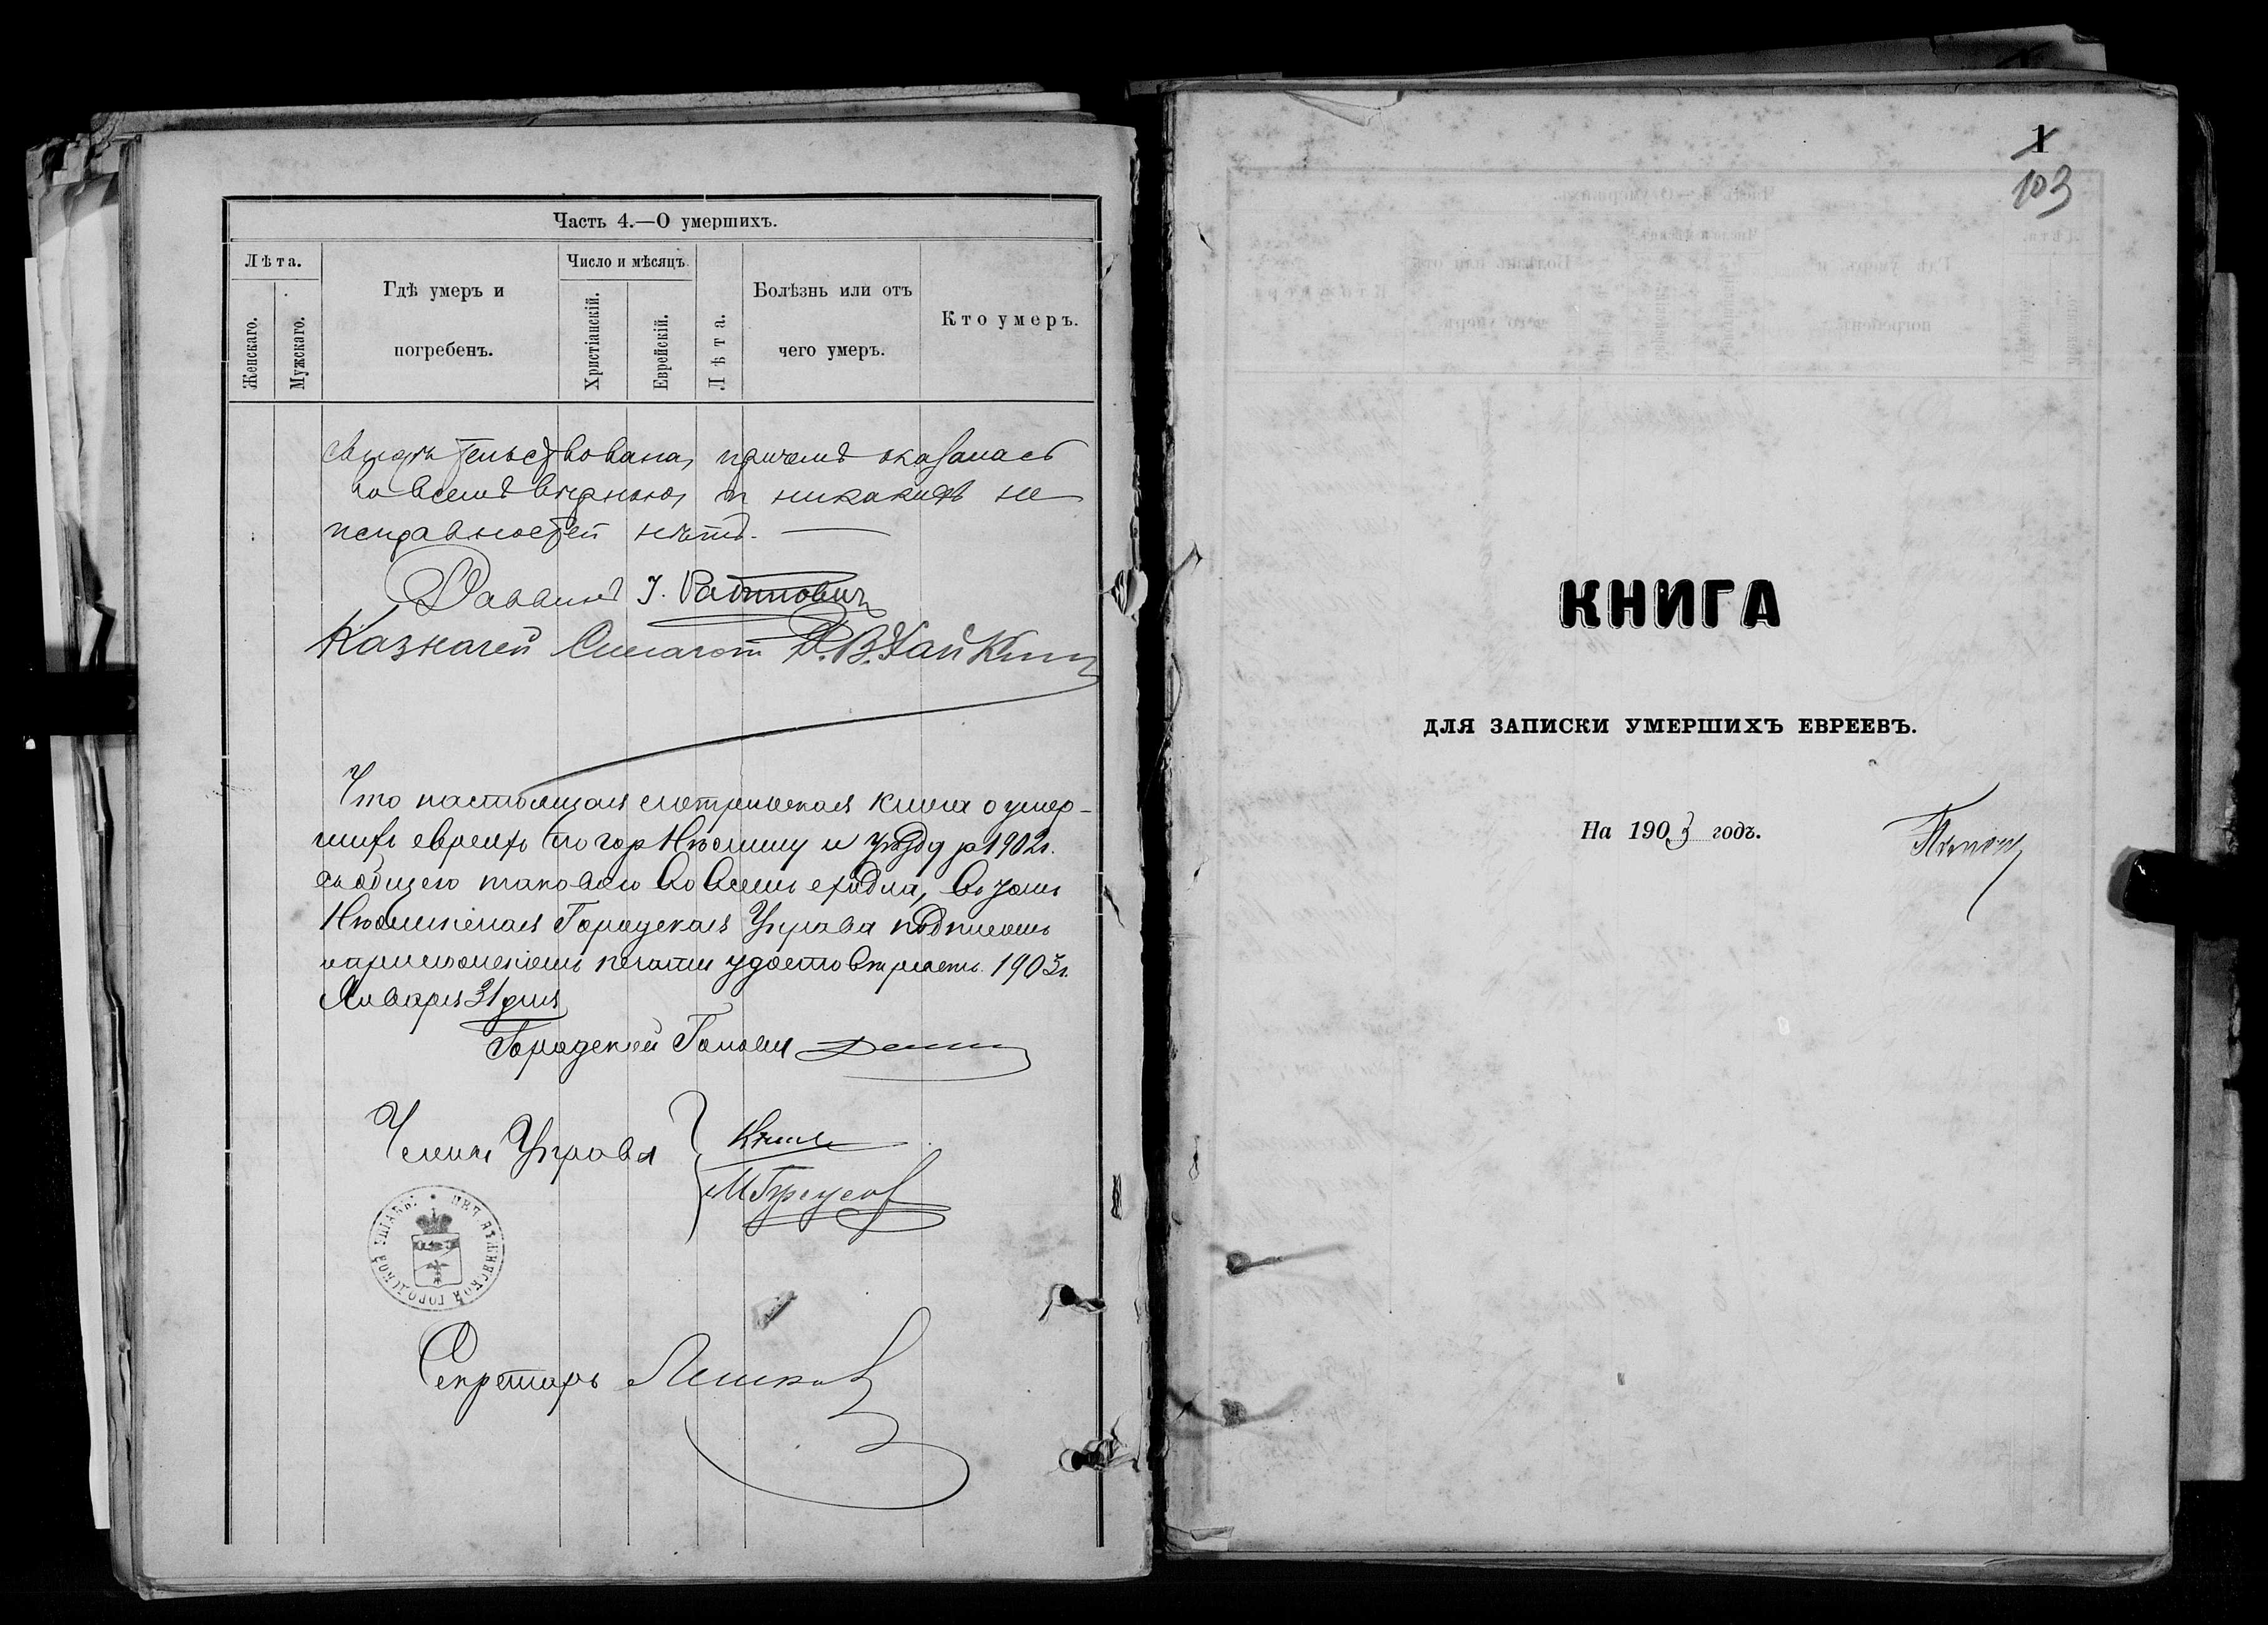 Часть 4.—О умершихъ.
Лѣта.
Женскаго.
Мужскаго.
Гдѣ умеръ и
погребенъ.
Число и мѣсяцъ.
Христіанскій.
Еврейскій.
Лѣта.
Болѣзнь или отъ
чего умеръ.
Кто умеръ.
свидѣтельствована, причемъ оказалась
во всемъ вѣрною, и никакихъ не
исправностей нѣтъ.
Раввинъ І. Рабиновичъ
Казначей Синагоги Д. В. Хайкин
Что настоящая метрическая книга о умер-
шихъ евреяхъ по гор Нѣжину и уѣзду за 1902 г.
съ общею таковою во всемъ сходна, въ томъ
Нѣжинская Городская Управа подписомъ
и приложеніемъ печати удостовѣряетъ. 1903 г.
Января 31 дня
Городской Голова
Члены Управы
Секретарь
ГОРОДСКОЙ
1
103
КНИГА
ДЛЯ ЗАПИСКИ УМЕРШИХЪ ЕВРЕЕВЪ.
На 1903 годъ.